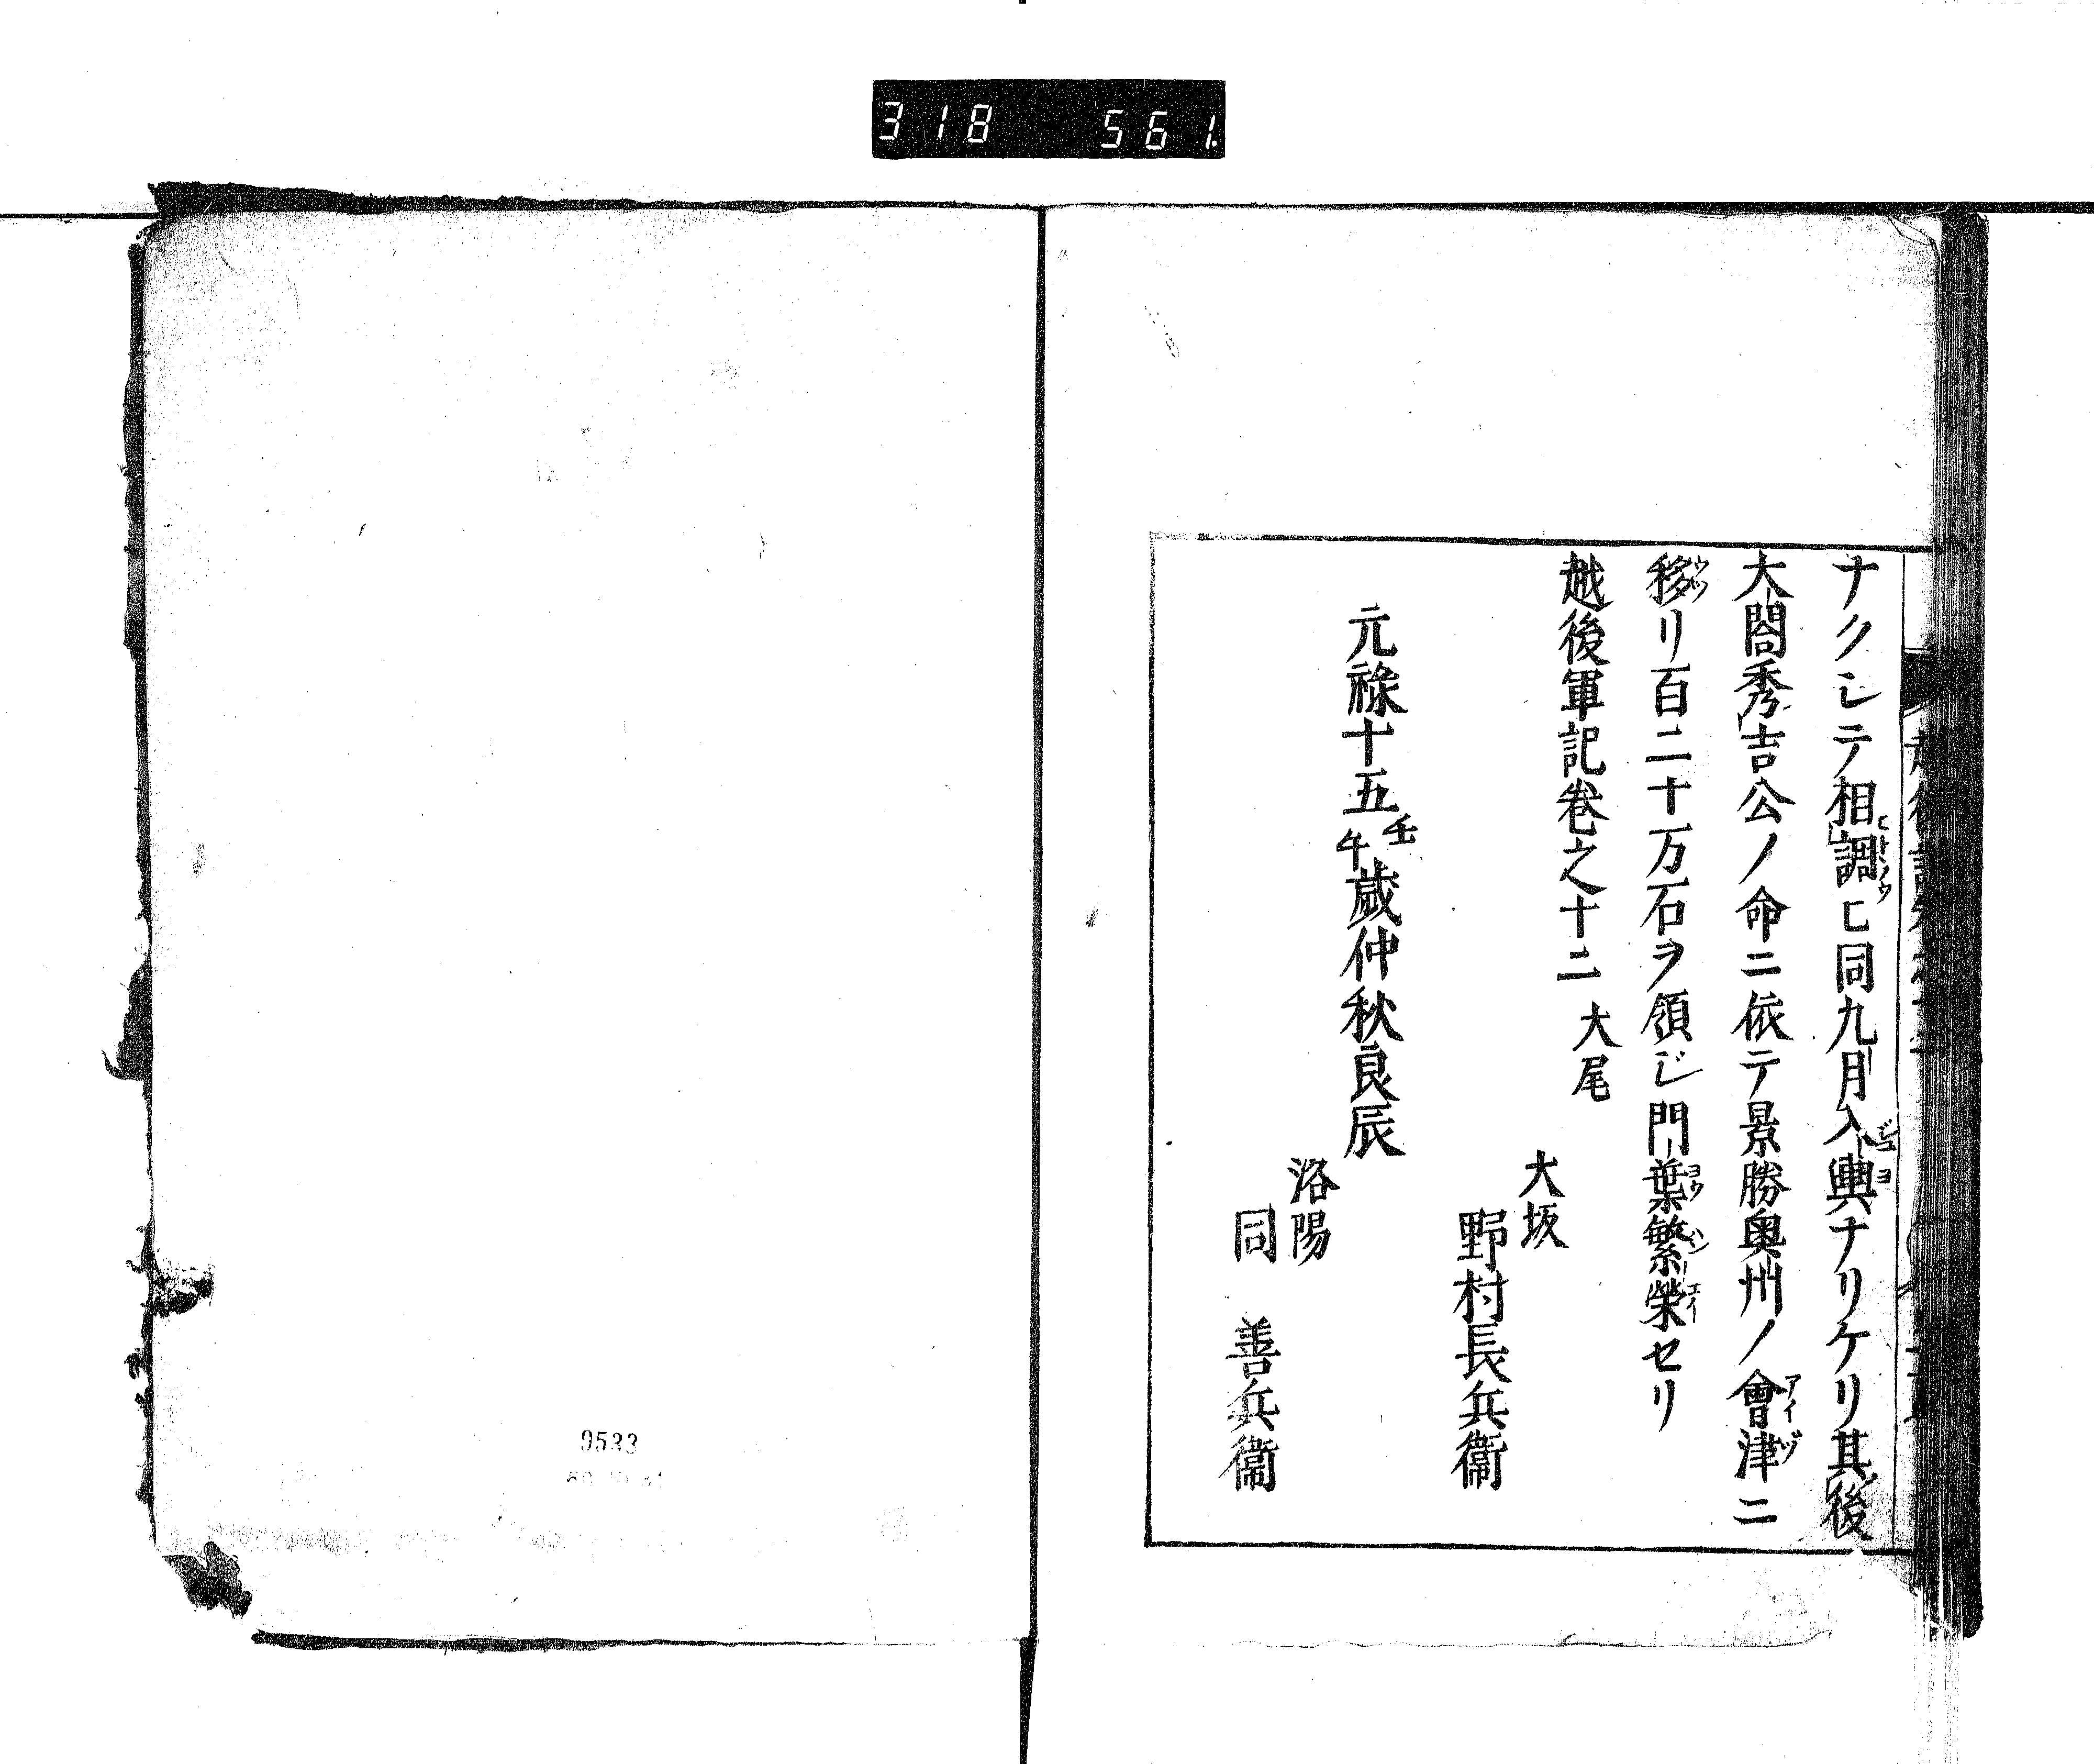 318 561.
ナクシテ相調ヒ同九月入輿ナリケリ其後
大閤秀吉公ノ命ニ依テ景勝奥州ノ會津ニ
移リ百二十万石ヲ領ジ門葉繁榮セリ
越後軍記卷之十二 大尾
大坂
野村長兵衞
元祿十五壬午歲仲秋良辰
洛陽
同 善兵衞
9533